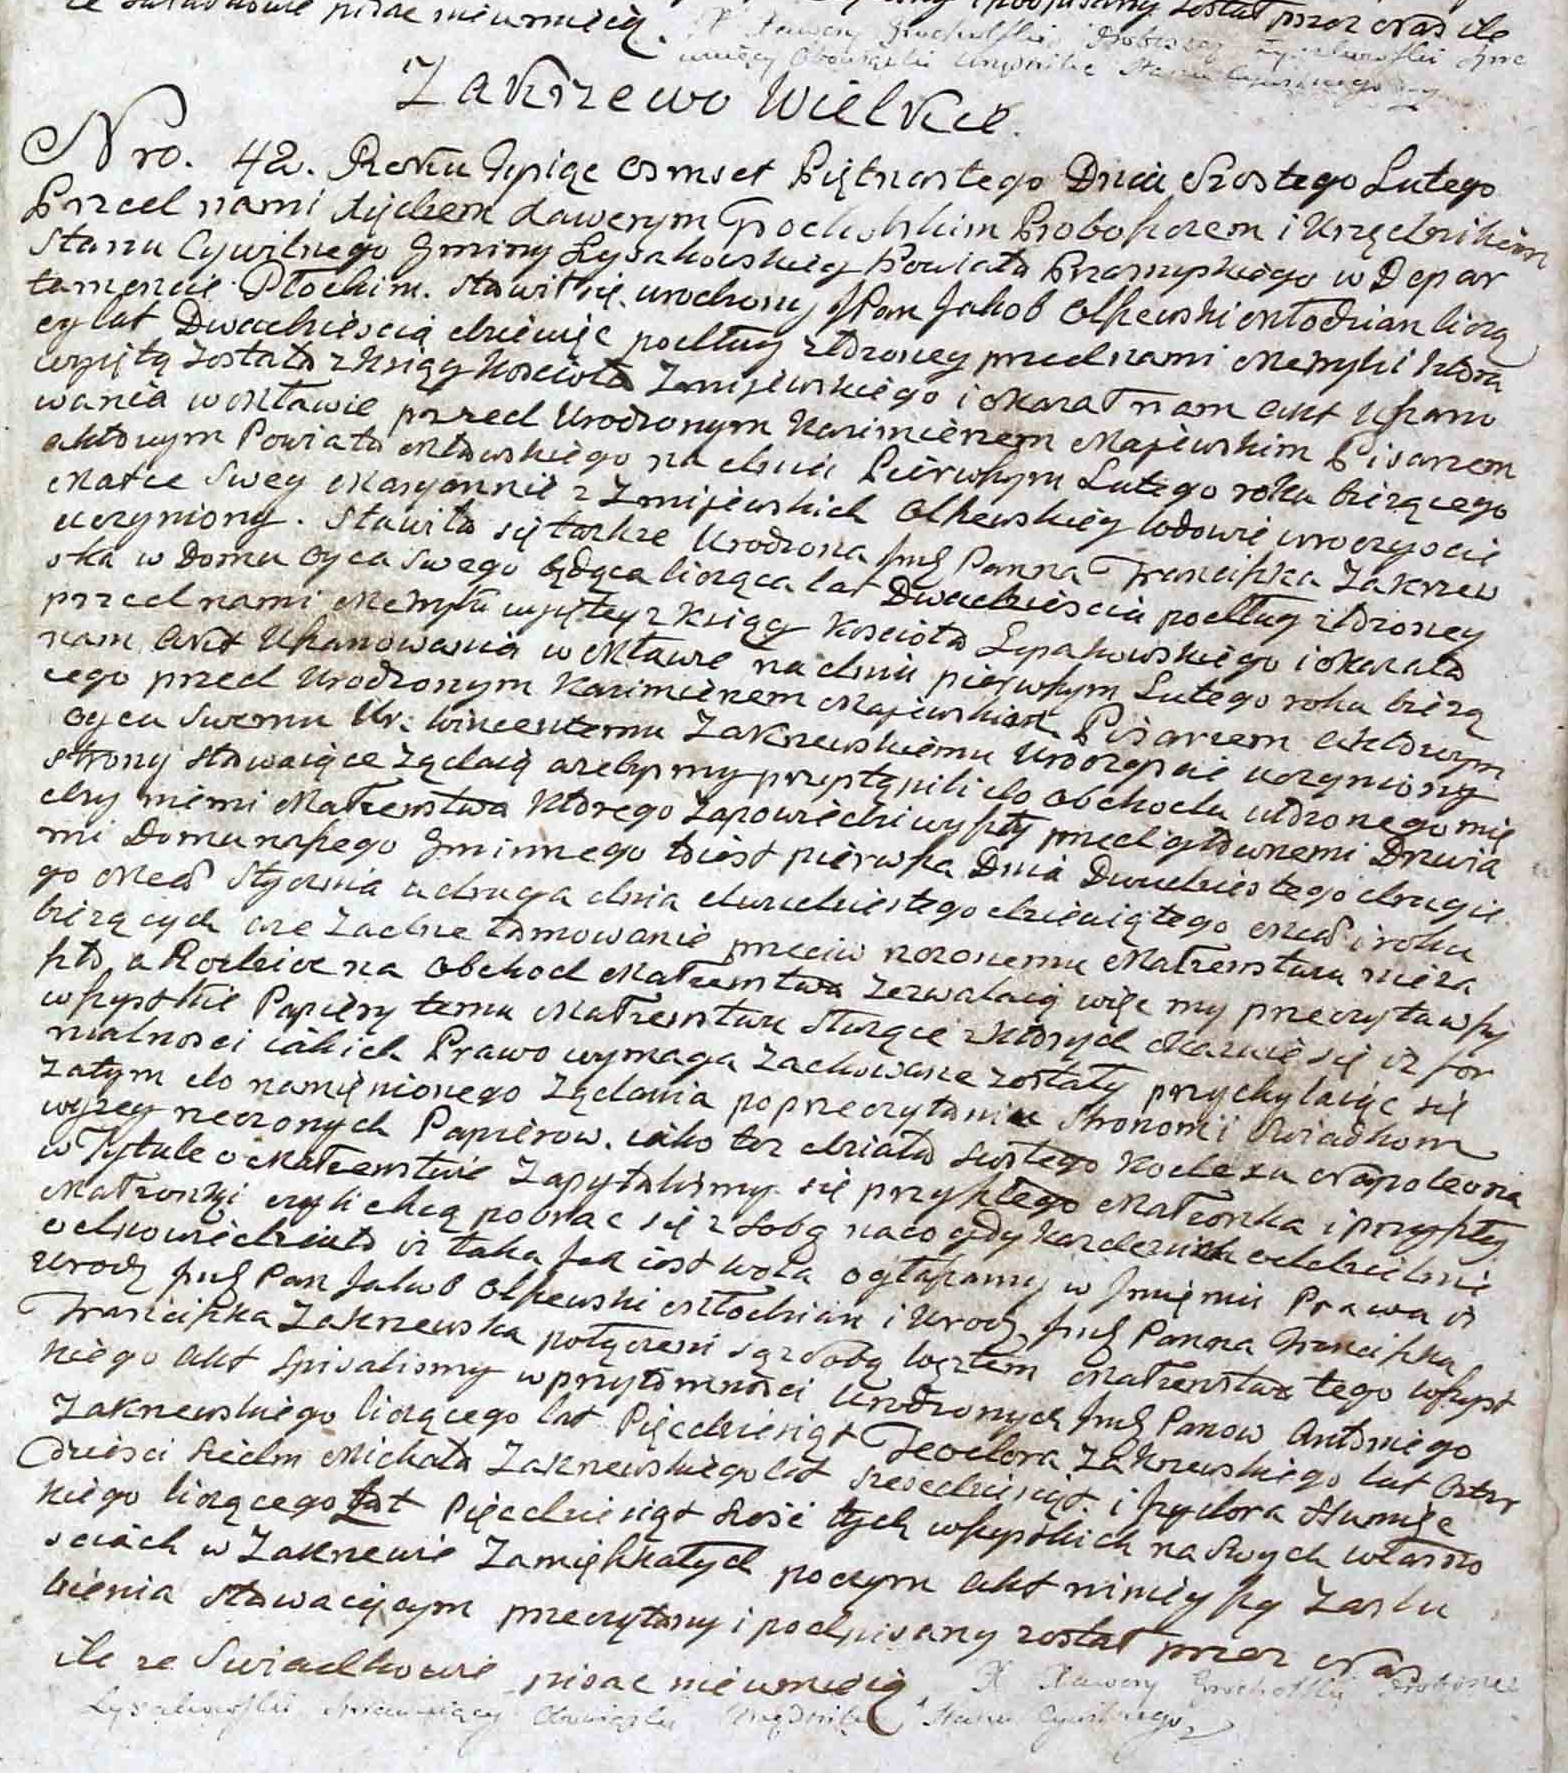 że Swiadkowie pisac nieumieią.
podpisany został przez Nas ile
X Xawery Grochulski Proboszcz Łysakowski Spra
wuiący Obowiązki Urzędnika Stanu Cywilnego
Zakrzewo Wielkie.
Nro. 42. Roku Tysiąc Osmset Piętnastego Dnia Szostego Lutego
Przed nami Xiędzem Xawerym Grochulskim Proboszczem i Urzędnikiem
Stanu Cywilnego Gminy Łysakowskiey Powiatu Przasnyskiego w Depar
tamencie Płockim. Stawił się urodzony JPan Jakob Olszewski Młodzian liczą
cy lat Dwadzieścią dziewięc podług złozoney przed nami Metryki ktora
wyiętą została z Xiąg Koscioła Zmijewskiego i okazał nam Akt Uszano
wania w Mławie przed Urodzonym Kazimierzem Majewskim Pisarzem
Aktowym Powiatu Mławskiego na dniu Pierwszym Lutego roku bieżącego
Matce Swey Maryannie z Zmijewskich Olszewskiey wdowie uroczyscie
uczyniony. Stawiła się takze Urodzona Jmć Panna Franciszka Zakrzew
ska w Domu Oyca Swego będąca licząca lat Dwadziescia podług złozoney
przed nami Metryki wyiętey z Xiąg Koscioła Łysakowskiego i okazała
nam Akt Uszanowania w Mławie na dniu pierwszym Lutego roku bieżą
cego przed Urodzonym Kazimierzem Majewskim Pisarzem Aktowym
Oycu Swemu Ur: Wincentemu Zakrzewskiemu Uroczyscie uczyniony
Strony stawaiące żądaią ażebysmy przystąpili do obchodu ułożonego mię
dzy niemi Małżenstwa ktorego Zapowiedzi wyszły przed głownemi Drzwia
mi Domu naszego Gminnego to iest pierwsza Dnia Dwudziestego drugie
go Mca Stycznia a druga dnia dwudziestego dziewiątego Mca i roku
bieżących że Zadne tamowanie przeciw rzeczonemu Małżenstwu nieza
szło a Rodzice na obchod Małżenstwa zezwalaią więc my przeczytawszy
wszystkie Papiery temu Małzenstwu służące z ktorych okazuie się iż for
malnosci iakich Prawo wymaga zachowane zostały przychylaiąc się
zatym do namienionego Żądania po przeczytaniu Stronom i Swiadkom
wyżey rzeczonych Papierow. iako też działu szostego Kodexu Napoleona
w Tytule o Małzenstwie Zapytalismy się przyszłego Małżonka i przyszłey
Małzonki czyli chcą pobrac się z sobą na co gdy każde z nich oddzielnie
odpowiedziało iż taka jch iest wola ogłaszamy w Jmieniu Prawa iż
Urodz Jmć Pan Jakob Olszewski Młodzian i Urodz Jmć Panna Franciszka
Franciszka Zakrzewska połączeni są z Sobą węzłem Małżenstwa tego wszyst
kiego Akt spisalismy w przytomnosci Urodzonych Jmć Panow Antoniego
Zakrzewskiego liczącego lat Pięcdziesiąt Teodora Zakrzewskiego lat Czter
dziesci siedm Michała Zakrzewskiego lat szescdziesiąt i Jzydora Humięc
kiego liczącego Lat Pięcdziesiąt szesc tych wszystkich na swych własno
sciach w Zakrzewie Zamięszkałych poczym Akt ninieyszy Zaslu
bienia stawaiącym przeczytany i podpisany został przez Nas
ile ze Swiadkowie pisac nieumieią X Xawery Grochulski Proboszcz
Łysakowski Sprawuiący Obowiązki Urzędnika Stanu Cywilnego